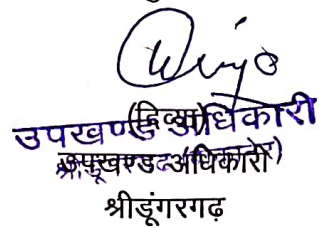 (दिव्या)
उपखण्ड अधिकारी
उपखण्ड अधिकारी
श्रीडूंगरगढ़